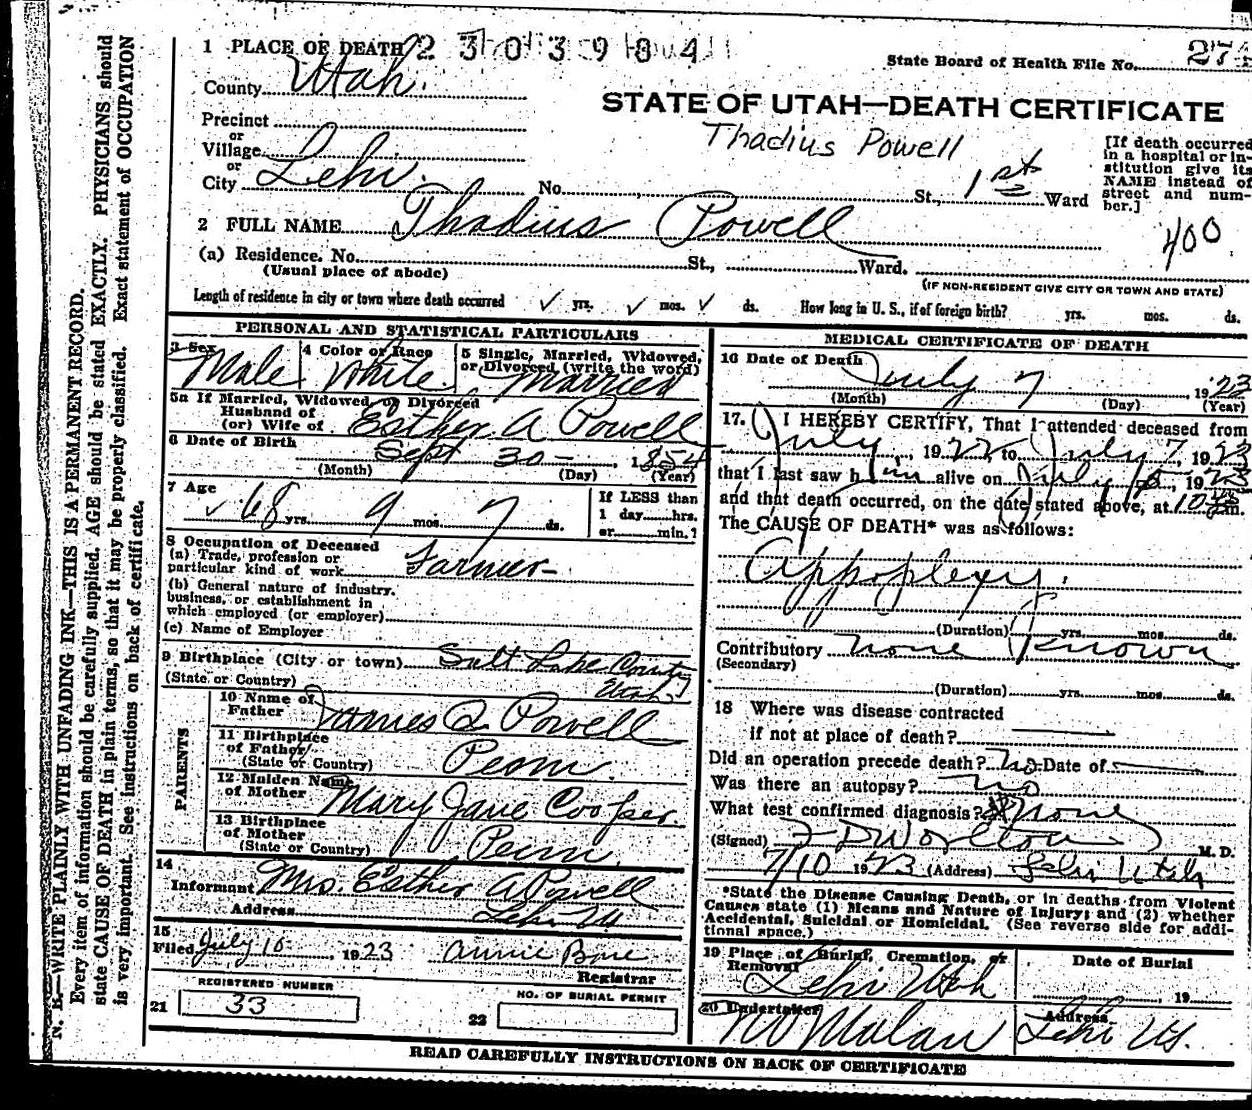 1 PLACE OF DEATH 2303984
State Board of Health File No. 274
County Utah.
STATE OF UTAH—DEATH CERTIFICATE
Thadius Powell
Precinct
or
Village
or
City Lehi. No. St., 1st Ward
[If death occurred
in a hospital or in-
stitution give its
NAME instead of
street and num-
ber.]
400
2 FULL NAME Thadius Powell
(a) Residence. No. St., Ward.
(Usual place of abode)
(IF NON-RESIDENT GIVE CITY OR TOWN AND STATE)
Length of residence in city or town where death occurred ✓ yrs. ✓ mos. ✓ ds. How long in U. S., if of foreign birth? yrs. mos. ds.
PERSONAL AND STATISTICAL PARTICULARS
3 Sex
Male
4 Color or Race
White
5 Single, Married, Widowed,
or Divorced (write the word)
Married
5a If Married, Widowed, or Divorced
Husband of
(or) Wife of Esther A Powell
6 Date of Birth Sept 30 — , 1854
(Month) (Day) (Year)
7 Age
✓ 68 yrs. 9 mos. 7 ds.
If LESS than
1 day hrs.
or min.?
8 Occupation of Deceased
(a) Trade, profession or
particular kind of work Farmer
(b) General nature of industry,
business, or establishment in
which employed (or employer)
(c) Name of Employer
9 Birthplace (City or town) Salt Lake County
(State or Country) Utah
PARENTS
10 Name of
Father James Q Powell
11 Birthplace
of Father
(State or Country)
12 Maiden Name
of Mother Mary Jane Cooper
13 Birthplace
of Mother
(State or Country)
14
Informant Mrs. Esther A Powell
Address Lehi Ut
15
Filed July 10, 1923 Annie
Registrar
REGISTERED NUMBER
21 33
NO. OF BURIAL PERMIT
22
MEDICAL CERTIFICATE OF DEATH
16 Date of Death
July 7, 1923
(Month) (Day) (Year)
17. I HEREBY CERTIFY, That I attended deceased from
July, 1922, to July 7, 1923
that I last saw him alive on July 5, 1923
and that death occurred, on the date stated above, at m.
The CAUSE OF DEATH* was as follows:
Appoplexy.
(Duration) yrs. mos. ds.
Contributory none Known
(Secondary)
(Duration) yrs. mos. ds.
18 Where was disease contracted
if not at place of death?
Did an operation precede death? No Date of
Was there an autopsy? No
What test confirmed diagnosis? None
(Signed) F D Worlton M. D.
7/10 1923 (Address) Lehi Utah
*State the Disease Causing Death, or in deaths from Violent
Causes state (1) Means and Nature of Injury; and (2) whether
Accidental, Suicidal or Homicidal. (See reverse side for addi-
tional space.)
19 Place of Burial, Cremation, or
Removal
Lehi Utah
Date of Burial
, 19
20 Undertaker
Malan
Address
Lehi Ut.
READ CAREFULLY INSTRUCTIONS ON BACK OF CERTIFICATE
N. B.—WRITE PLAINLY WITH UNFADING INK—THIS IS A PERMANENT RECORD.
Every item of information should be carefully supplied. AGE should be stated EXACTLY. PHYSICIANS should
state CAUSE OF DEATH in plain terms, so that it may be properly classified. Exact statement of OCCUPATION
is very important. See instructions on back of certificate.